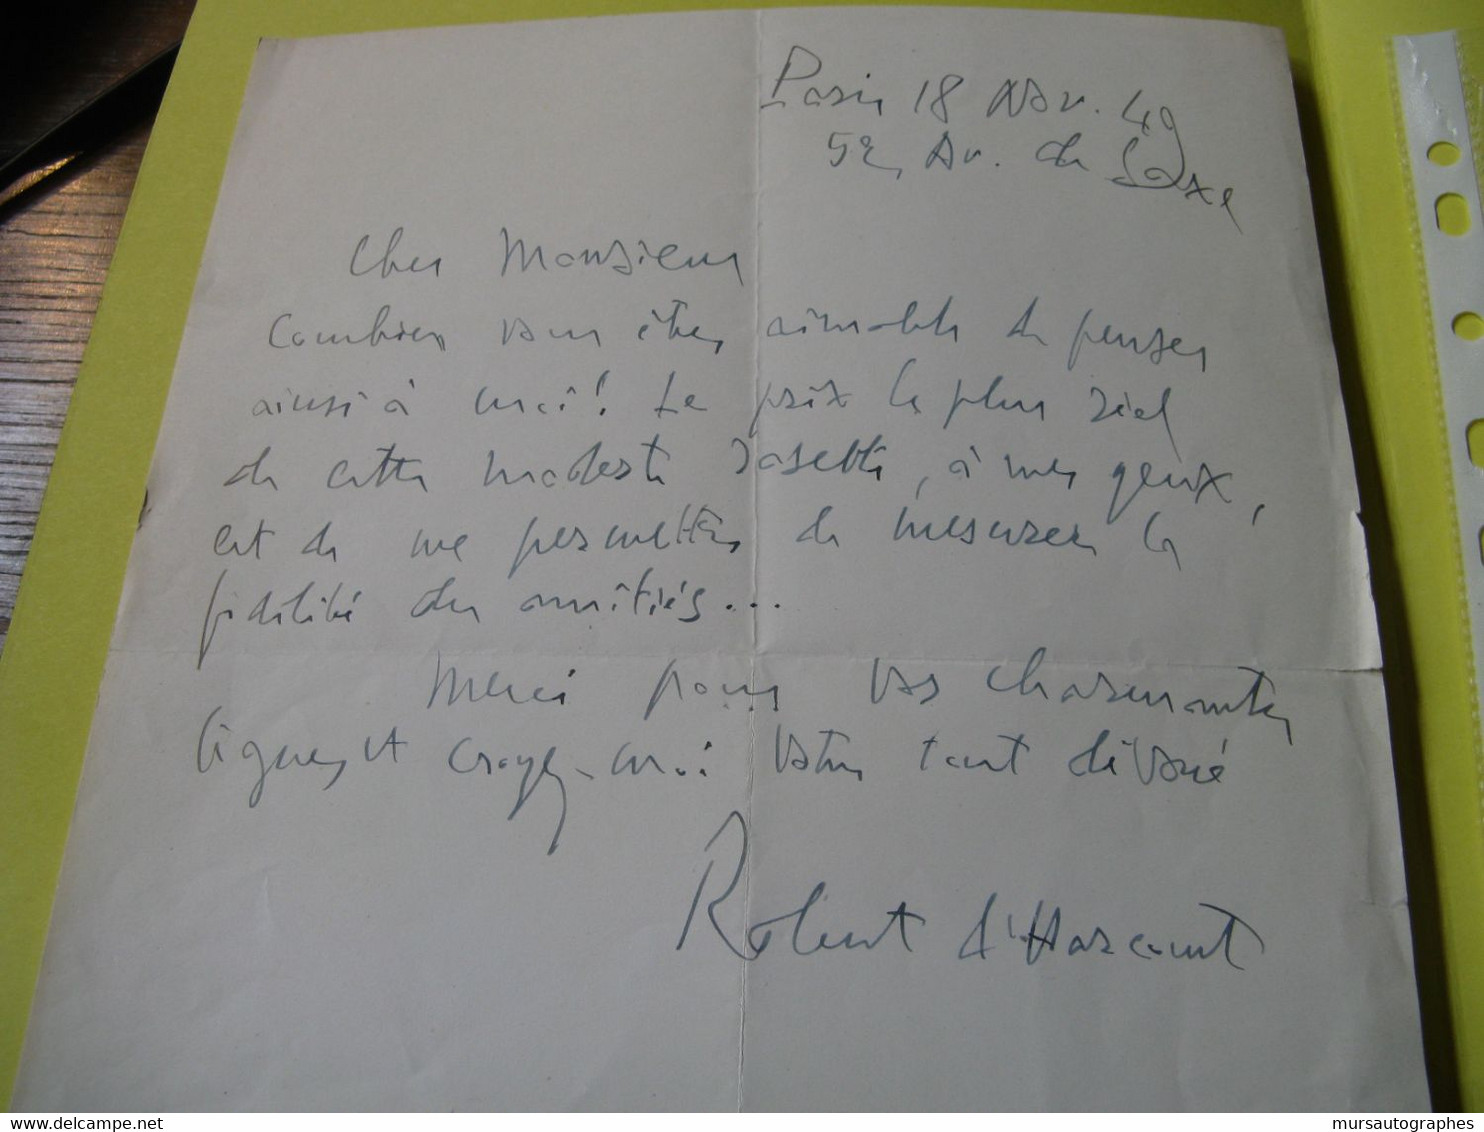 Paris 18 Nov. 49
52, Av. de Saxe
Cher Monsieur
Combien vous êtes aimable de penser
ainsi à moi! Le prix le plus réel
de cette modeste rosette, à mes yeux,
est de me permettre de mesurer la
fidélité des amitiés...
Merci pour vos charmantes
lignes et croyez-moi votre tout dévoué
Robert d'Harcourt
delcampe.net
mursautographes